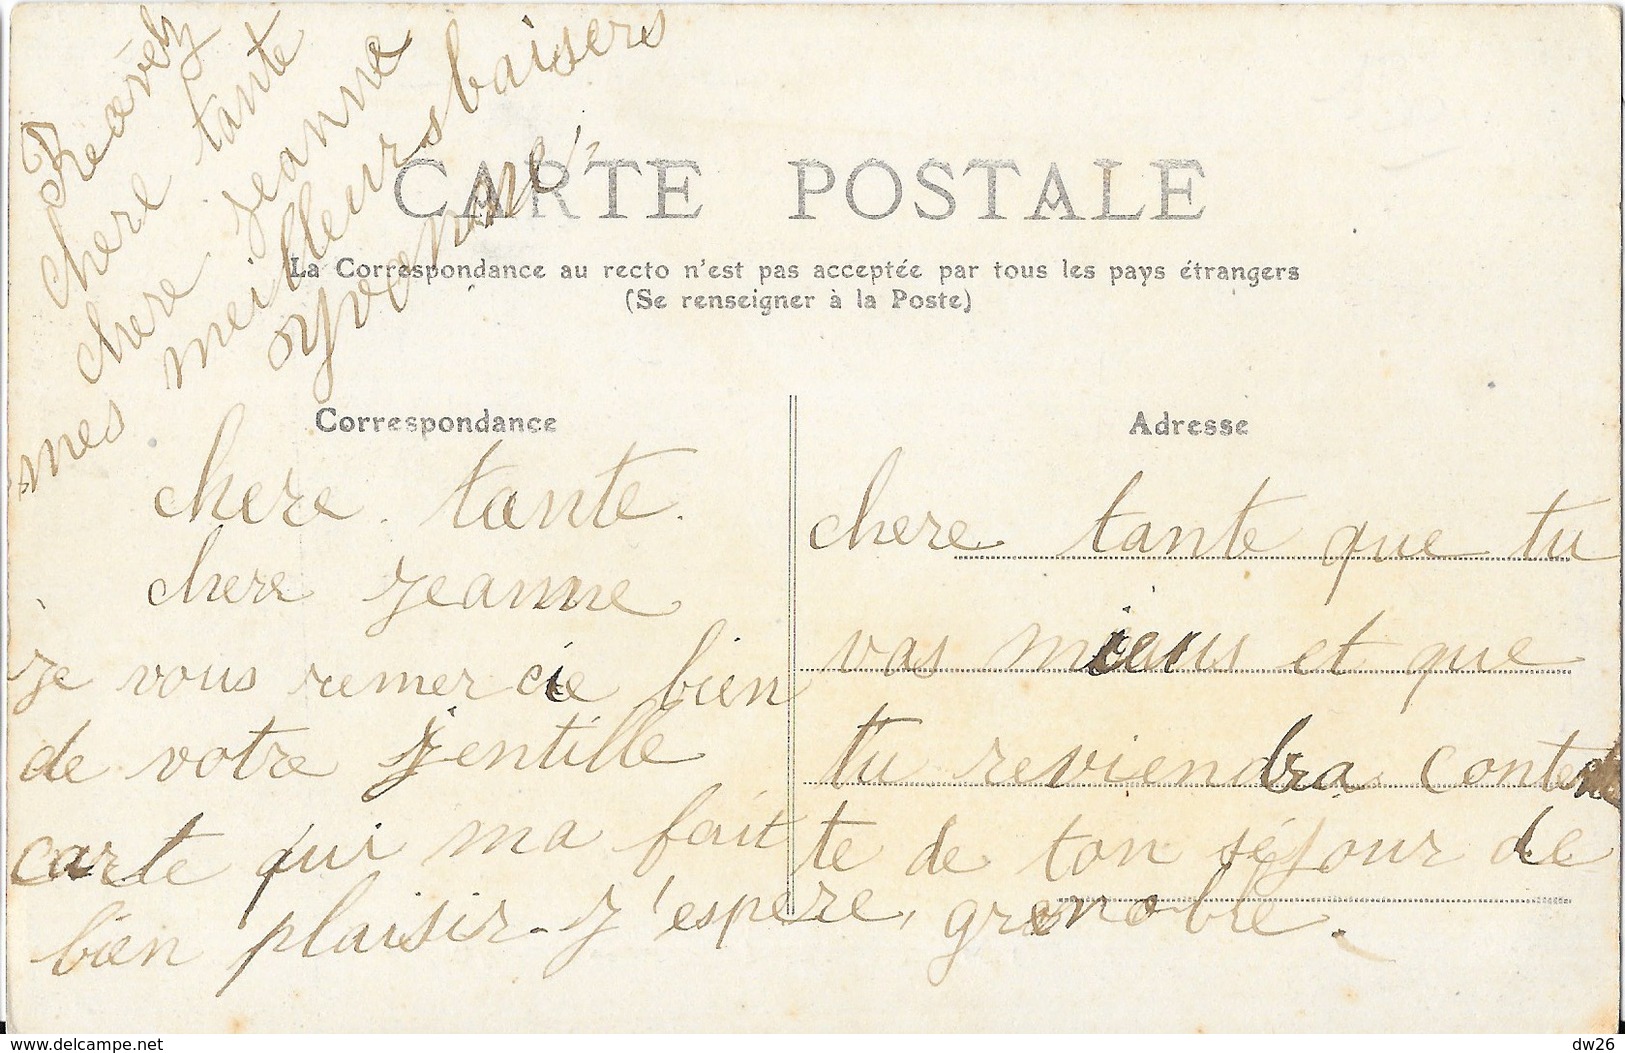 CARTE POSTALE
La Correspondance au recto n'est pas acceptée par tous les pays étrangers
(Se renseigner à la Poste)
Correspondance
chere tante.
chere jeanne
je vous remercie bien
de votre jentille
carte qui ma fait
bien plaisir. j'espere,
Adresse
chere tante que tu
vas mieus et que
tu reviendra conten
te de ton séjour de
grenoble.
Recevez
chere tante
chere jeanne
mes meilleurs baisers
yvonne
delcampe.net
dw26